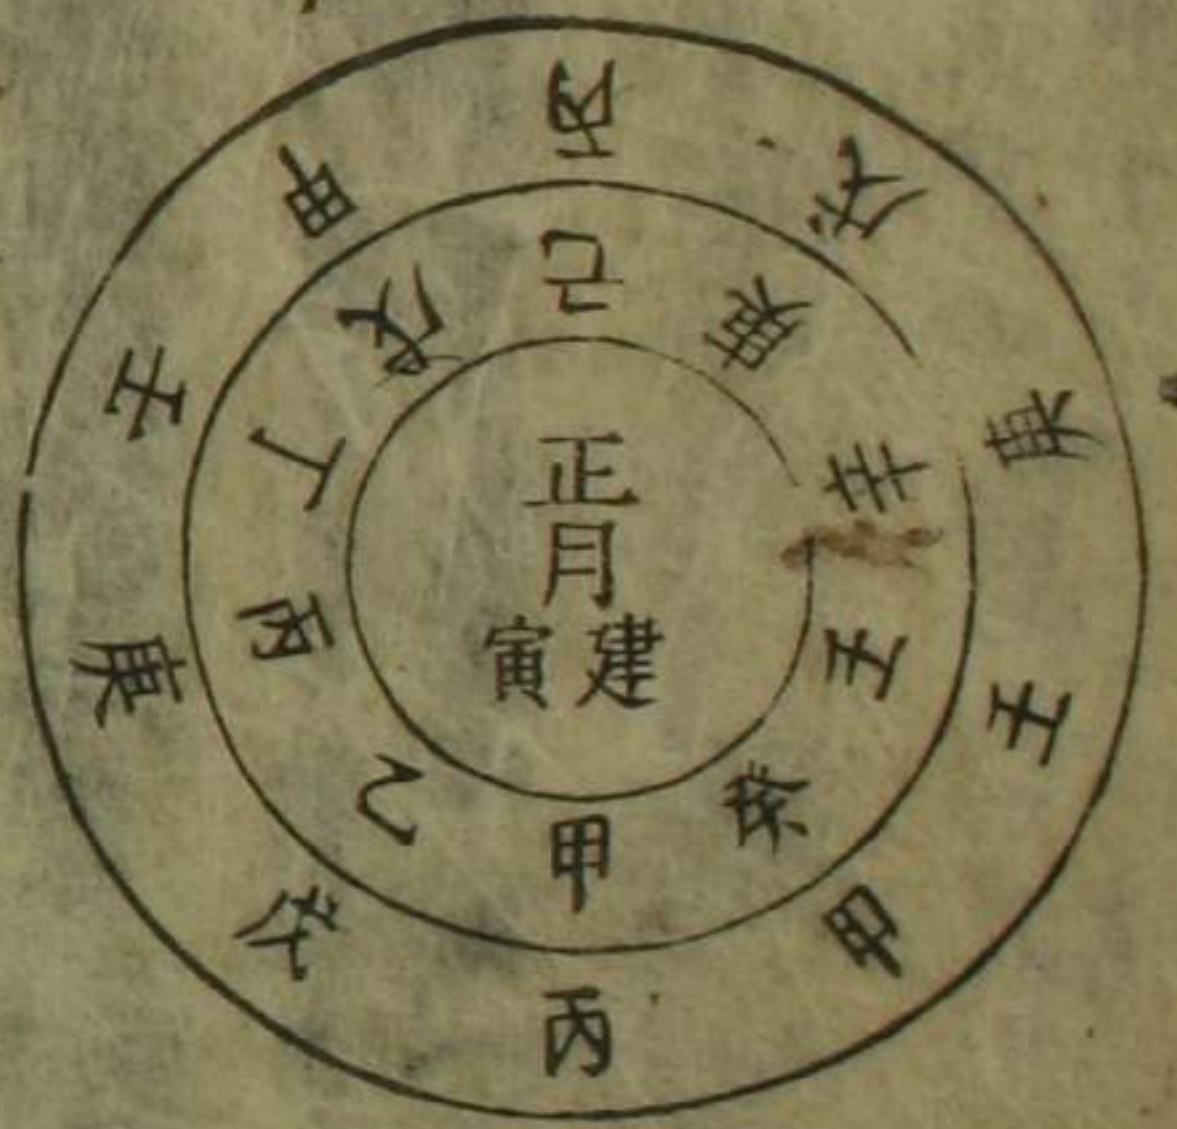 正月
建寅
甲乙丙丁戊己庚辛壬癸
丙戊庚壬甲丙戊庚壬甲